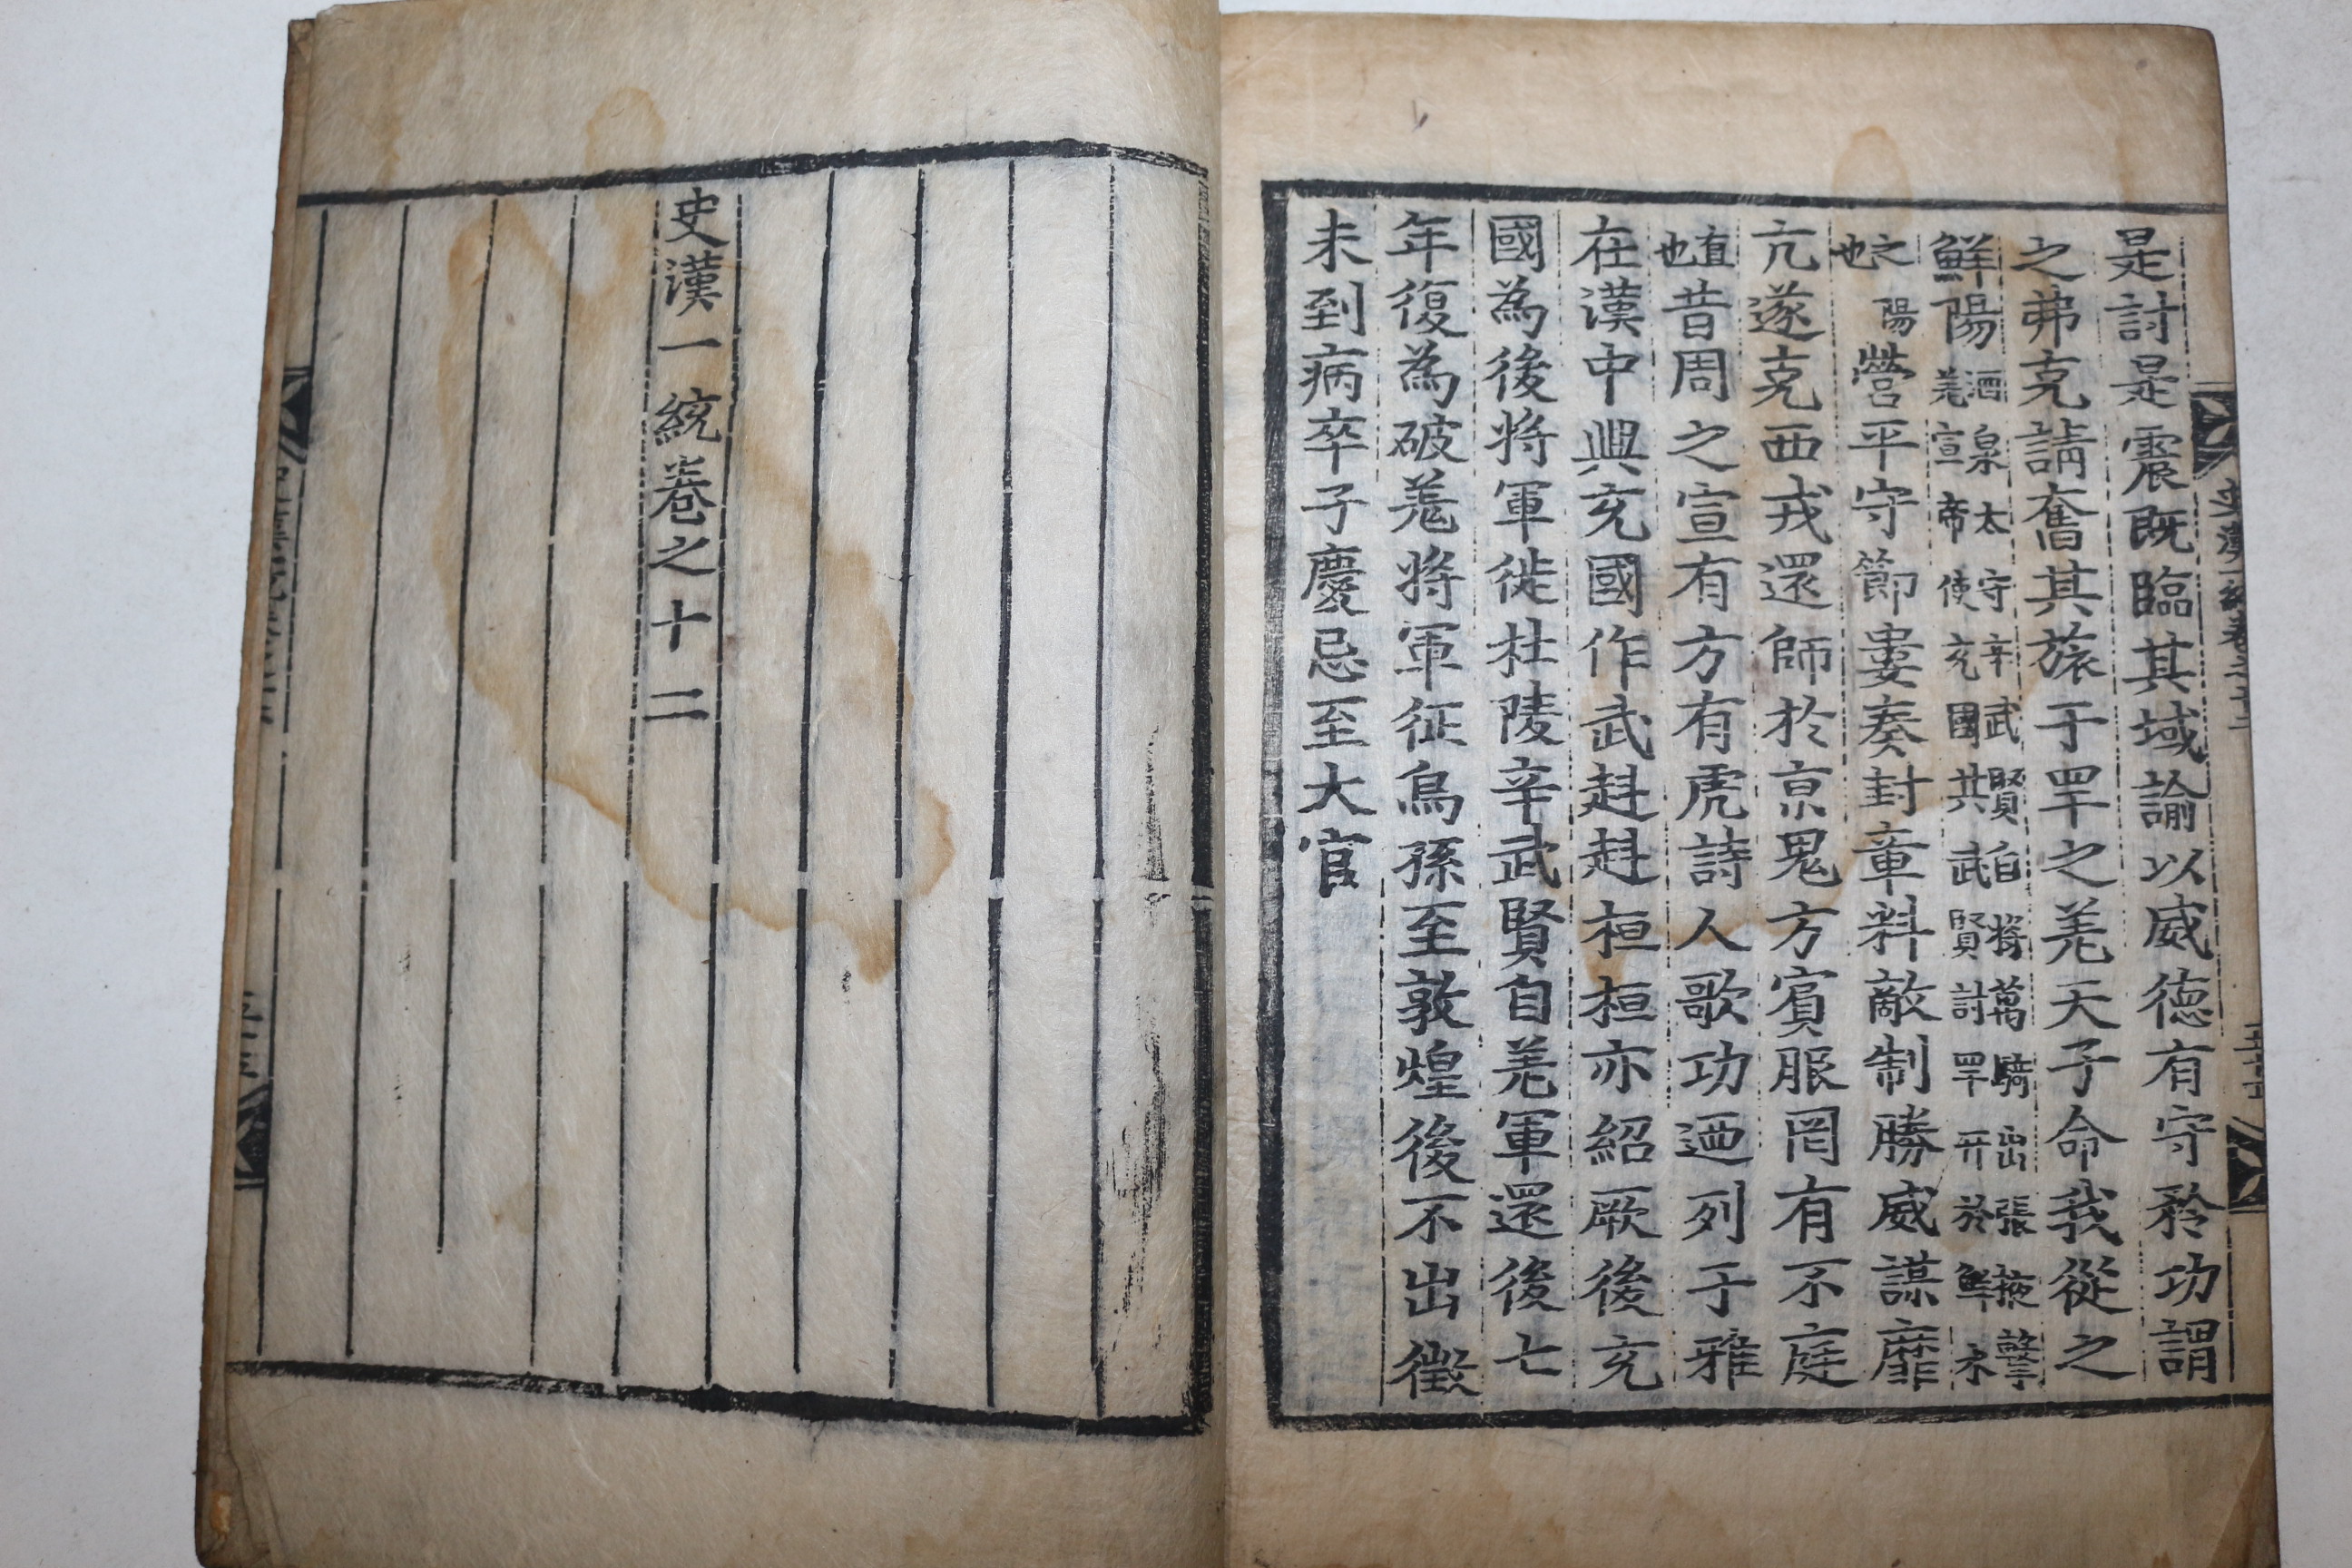 是討是震既臨其域諭以威德有守矜功謂
之弗克請奮其旅于罕之羌天子命我從之
鮮陽酒泉太守辛武賢自將萬騎出張掖擊
羌宣帝使充國共武賢討罕幵於鮮水
之陽
也營平守節婁奏封章料敵制勝威謀靡
亢遂克西戎還師於京鬼方賓服罔有不庭
直
也昔周之宣有方有虎詩人歌功迺列于雅
在漢中興充國作武赳赳桓桓亦紹厥後充
國為後將軍徙杜陵辛武賢自羌軍還後七
年復為破羌將軍征烏孫至敦煌後不出徵
未到病卒子慶忌至大官
史漢一統卷之十二
史漢一統卷之十二